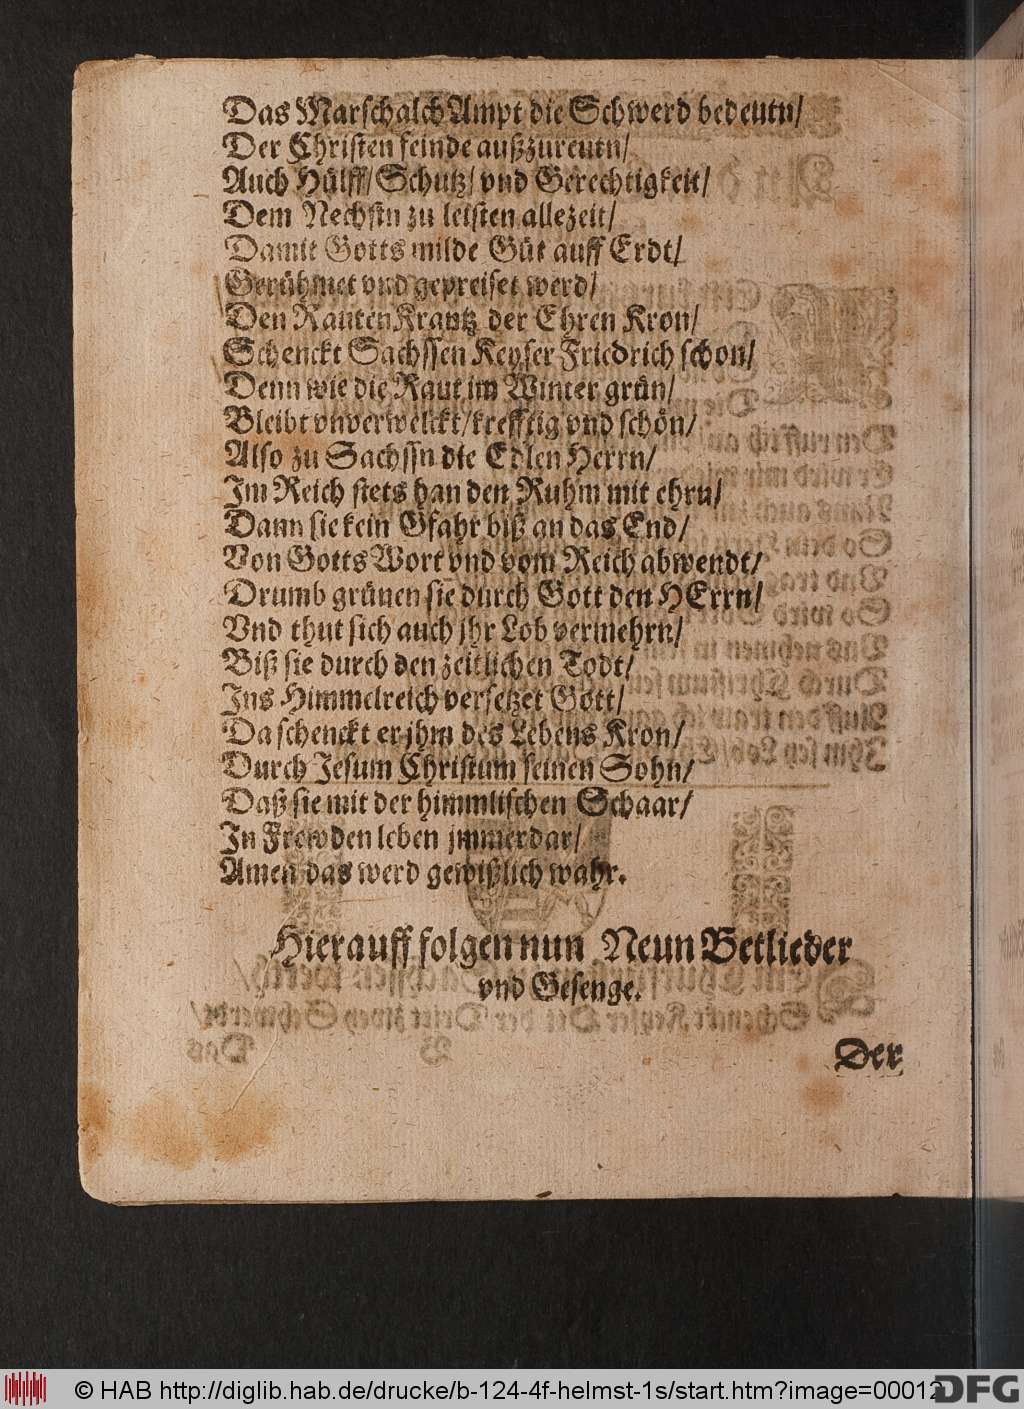 Das Marschalch Ampt die Schwerd bedeutn/
Der Christen feinde außzureutn/
Auch Hülff/ Schutz/ vnd Gerechtigkeit/
Dem Nechstn zu leisten allezeit/
Damit Gotts milde Güt auff Erdt/
Gerühmet vnd gepreiset werd/
Den Rauten Krantz der Ehren Kron/
Schenckt Sachssen Keyser Friedrich schon/
Denn wie die Raut im Winter grün/
Bleibt vnverwelckt/ krefftig vnd schön/
Also zu Sachssn die Edlen Herrn/
Im Reich stets han den Ruhm mit ehrn/
Dann sie kein Gfahr biß an das End/
Von Gotts Wort vnd vom Reich abwendt/
Drumb grünen sie durch Gott den HErrn/
Vnd thut sich auch jhr Lob vermehrn/
Biß sie durch den zeitlichen Todt/
Ins Himmelreich versetzet Gott/
Da schenckt er jhm des Lebens Kron/
Durch Jesum Christum seinen Sohn/
Daß sie mit der himmlischen Schaar/
In Frewden leben jmmerdar/
Amen das werd gewißlich wahr.
Hierauff folgen nun Neun Betlieder
vnd Gesenge.
Der
© HAB http://diglib.hab.de/drucke/b-124-4f-helmst-1s/start.htm?image=00012
DFG